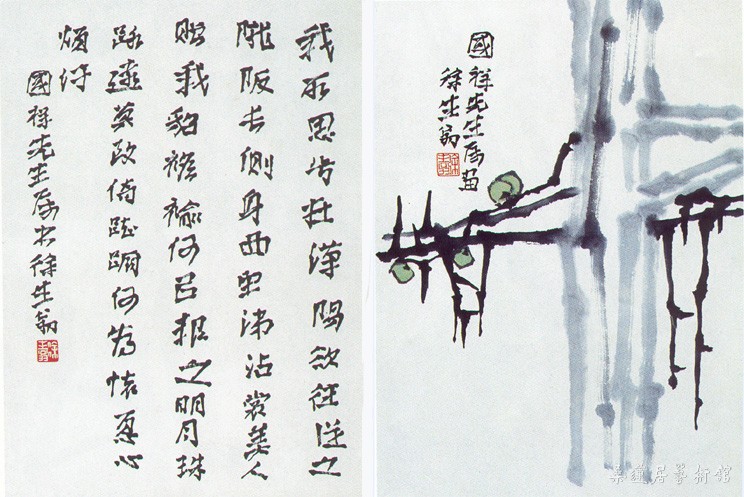 我所思兮在漢陽欲往從之
隴阪長側身西望涕沾裳美人
贈我貂襜褕何㠯報之明月珠
路遠莫致倚踟躕何為懷憂心
煩紆
國祥先生屬書徐生翁
國祥先生屬畫
徐生翁
居藝術館